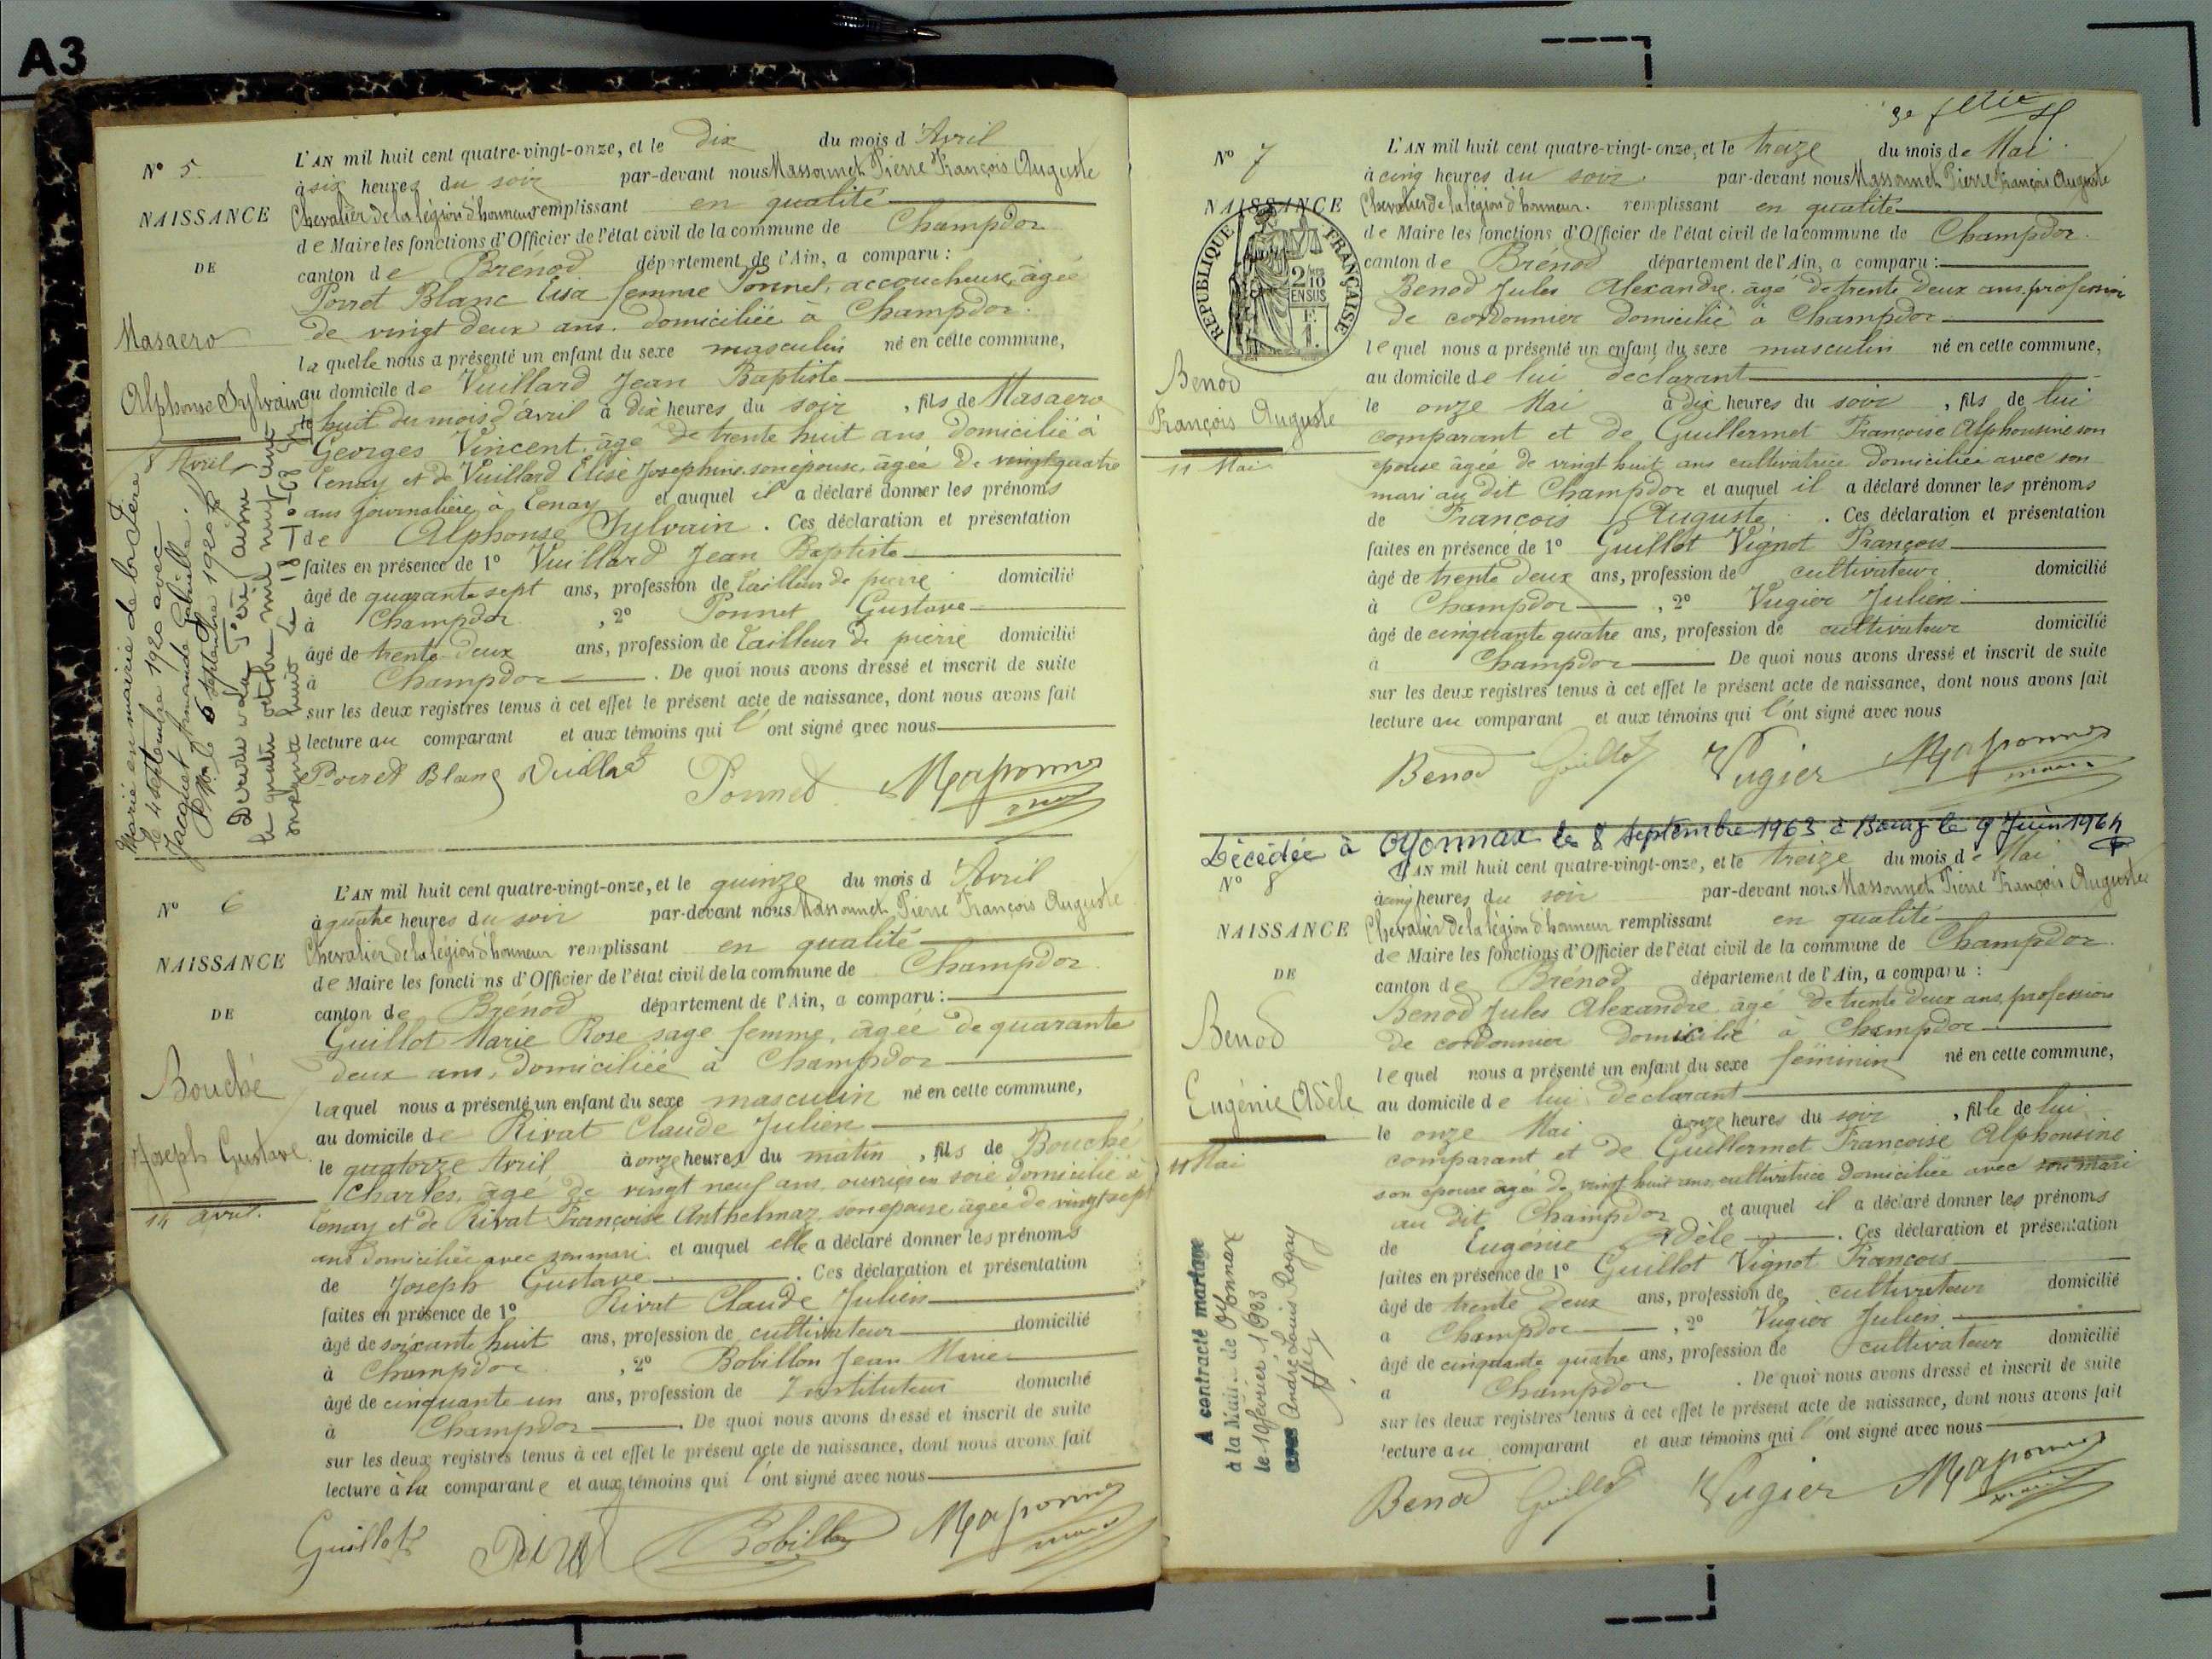 A3
N° 5
NAISSANCE
DE
Masaero
Alphonse Sylvain
8 Avril
Marié en mairie de
le 4 septembre 1920 avec
Jacquet Armande Gabrielle.
le 6 septembre 1920
Décédé à
le quatre octobre mil neuf cent
soixante huit le 18-10-68
L'AN mil huit cent quatre-vingt-onze, et le dix du mois d'Avril
à six heures du soir par-devant nous Massonnet Pierre François Auguste
Chevalier de la légion d'honneur remplissant en qualité
de Maire les fonctions d'Officier de l'état civil de la commune de Champdor
canton de Brénod département de l'Ain, a comparu :
Poret Blanc Elisa femme Ponnet, accoucheuse, âgée
de vingt deux ans. domiciliée à Champdor.
laquelle nous a présenté un enfant du sexe masculin né en cette commune,
au domicile de Vuillard Jean Baptiste
le huit du mois d'avril à dix heures du soir, fils de Masaero
Georges Vincent, âgé de trente huit ans domicilié à
Tenay et de Vuillard Elise Josephine son épouse, âgée de vingt quatre
ans journalière à Tenay et auquel il a déclaré donner les prénoms
de Alphonse Sylvain. Ces déclaration et présentation
faites en présence de 1° Vuillard Jean Baptiste
âgé de quarante sept ans, profession de tailleur de pierre domicilié
à Champdor, 2° Ponnet Gustave
âgé de trente deux ans, profession de tailleur de pierre domicilié
à Champdor. De quoi nous avons dressé et inscrit de suite
sur les deux registres tenus à cet effet le présent acte de naissance, dont nous avons fait
lecture au comparant et aux témoins qui l'ont signé avec nous
Poret Blanc Vuillard Ponnet Massonnet
maire
N° 6
NAISSANCE
DE
Bouché
Joseph Gustave
14 Avril.
L'AN mil huit cent quatre-vingt-onze, et le quinze du mois d'Avril
à quatre heures du soir par-devant nous Massonnet Pierre François Auguste
Chevalier de la légion d'honneur remplissant en qualité
de Maire les fonctions d'Officier de l'état civil de la commune de Champdor
canton de Brénod département de l'Ain, a comparu :
Guillot Marie Rose sage femme, âgée de quarante
deux ans, domiciliée à Champdor
laquel nous a présenté un enfant du sexe masculin né en cette commune,
au domicile de Rivat Claude Julien
le quatorze Avril à onze heures du matin, fils de Bouché
Charles, âgé de vingt neuf ans ouvrier en soie domicilié à
Tenay et de Rivat Françoise Anthelmaz son épouse âgée de vingt sept
ans domiciliée avec son mari et auquel elle a déclaré donner les prénoms
de Joseph Gustave. Ces déclaration et présentation
faites en présence de 1° Rivat Claude Julien
âgé de soixante huit ans, profession de cultivateur domicilié
à Champdor, 2° Bobillon Jean Marie
âgé de cinquante un ans, profession de Instituteur domicilié
à Champdor. De quoi nous avons dressé et inscrit de suite
sur les deux registres tenus à cet effet le présent acte de naissance, dont nous avons fait
lecture à la comparante et aux témoins qui l'ont signé avec nous
Guillot Rivat Bobillon Massonnet
maire
N° 7
NAISSANCE
RÉPUBLIQUE FRANÇAISE
2/10 EN SUS
Benod
François Auguste
11 Mai
L'AN mil huit cent quatre-vingt-onze, et le treize du mois de Mai
à cinq heures du soir. par-devant nous Massonnet Pierre François Auguste
Chevalier de la légion d'honneur. remplissant en qualité
de Maire les fonctions d'Officier de l'état civil de la commune de Champdor.
canton de Brénod département de l'Ain, a comparu :
Benod Jules Alexandre âgé de trente deux ans, profession
de cordonnier domicilié à Champdor
lequel nous a présenté un enfant du sexe masculin né en cette commune,
au domicile de lui déclarant
le onze Mai à dix heures du soir, fils de lui
comparant et de Guillermet Françoise Alphonsine son
épouse âgée de vingt huit ans cultivatrice domiciliée avec son
mari au dit Champdor et auquel il a déclaré donner les prénoms
de François Auguste. Ces déclaration et présentation
faites en présence de 1° Guillot Vignot François
âgé de trente deux ans, profession de cultivateur domicilié
à Champdor, 2° Vugier Julien
âgé de cinquante quatre ans, profession de cultivateur domicilié
à Champdor De quoi nous avons dressé et inscrit de suite
sur les deux registres tenus à cet effet le présent acte de naissance, dont nous avons fait
lecture au comparant et aux témoins qui l'ont signé avec nous
Benod Guillot Vugier Massonnet
maire
Décédée à Oyonnax le 8 Septembre 1963 à Bourg le 9 Juin 1964
N° 8
NAISSANCE
DE
Benod
Eugénie Adèle
11 Mai
A contracté mariage
à la Mairie de Oyonnax
le 10 février 1923
avec André Louis Rogay
L'AN mil huit cent quatre-vingt-onze, et le treize du mois de Mai
à cinq heures du soir par-devant nous Massonnet Pierre François Auguste
Chevalier de la légion d'honneur remplissant en qualité
de Maire les fonctions d'Officier de l'état civil de la commune de Champdor
canton de Brénod département de l'Ain, a comparu :
Benod Jules Alexandre âgé de trente deux ans, profession
de cordonnier domicilié à Champdor
lequel nous a présenté un enfant du sexe féminin né en cette commune,
au domicile de lui déclarant
le onze Mai à onze heures du soir, fille de lui
comparant et de Guillermet Françoise Alphonsine
son épouse âgée de vingt huit ans, cultivatrice domiciliée avec son mari
au dit Champdor et auquel il a déclaré donner les prénoms
de Eugénie Adèle. Ces déclaration et présentation
faites en présence de 1° Guillot Vignot François
âgé de trente deux ans, profession de cultivateur domicilié
à Champdor, 2° Vugier Julien
âgé de cinquante quatre ans, profession de cultivateur domicilié
à Champdor. De quoi nous avons dressé et inscrit de suite
sur les deux registres tenus à cet effet le présent acte de naissance, dont nous avons fait
lecture au comparant et aux témoins qui l'ont signé avec nous
Benod Guillot Vugier Massonnet
maire